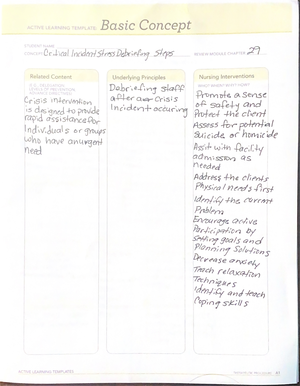 ACTIVE LEARNING TEMPLATE: Basic Concept
STUDENT NAME
CONCEPT Critical Incident Stress Debriefing Steps
REVIEW MODULE CHAPTER 29
Related Content
Underlying Principles
Nursing Interventions
Crisis intervention
is designed to provide
rapid assistance for
Individuals or groups
who have an urgent
need
Debriefing staff
after a or crisis
Incident occuring
Promote a sense
of safety and
Protect the client
Assess for potential
Suicide or homicide
Assist with facility
admission as
needed
Address the clients
Physical needs first
Identify the current
Problem
Encourage active
Participation by
Setting goals and
Planning Solutions
Decrease anxiety
Teach relaxation
Techniques
Identify and teach
Coping skills
ACTIVE LEARNING TEMPLATES